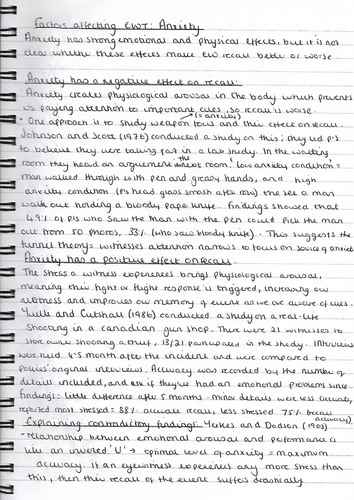 Factors affecting EWT: Anxiety
Anxiety has strong emotional and physical effects, but it is not
clear whether these effects make EW recall better or worse.
Anxiety has a negative effect on recall:
Anxiety creates physiological arousal in the body which prevents
us paying attention to important cues, so recall is worse.
(is anxiety)
- One approach is to study weapon focus and their effect on recall.
Johnson and Scott (1976) conducted a study on this; they led p's
to believe they were taking part in a lab study. In the waiting
room they heard an argument in the room 'low anxiety condition' =
man walked through with pen and greasy hands, and high
anxiety condition (p's head glass smash after row) the see a man
walk out holding a bloody paper knife. Findings showed that
49% of p's who saw the man with the pen could pick the man
out from 50 photos, 33% (who saw bloody knife). This suggests the
tunnel theory: witnesses attention narrows to focus on source of anxiety
Anxiety has a positive effect on Recall.
The stress a witness experiences brings physiological arousal,
meaning their fight or flight response is triggered, increasing our
alertness and improves our memory of event as we are aware of cues.
Yuille and Cutshall (1986) conducted a study on a real-life
shooting in a canadian gun shop. There were 21 witnesses to
store owner shooting a thief, 13/21 participated in the study. Interviews
were held 4-5 months after the incident and were compared to
polices' original interviews. Accuracy was recorded by the number of
details included, and ask if they're had an emotional problems since.
findings: little difference after 5 months. minor details were less accurate,
reported most stressed: 88% accurate recall, less stressed 75% (recall
accuracy).
Explaining contradictory findings: Yerkes and Dodson (1908)
- relationship between emotional arousal and performance is
like an inverted 'U' → optimal level of anxiety = maximum
accuracy. If an eyewitness experiences any more stress than
this, then their recall of the event suffers drastically.